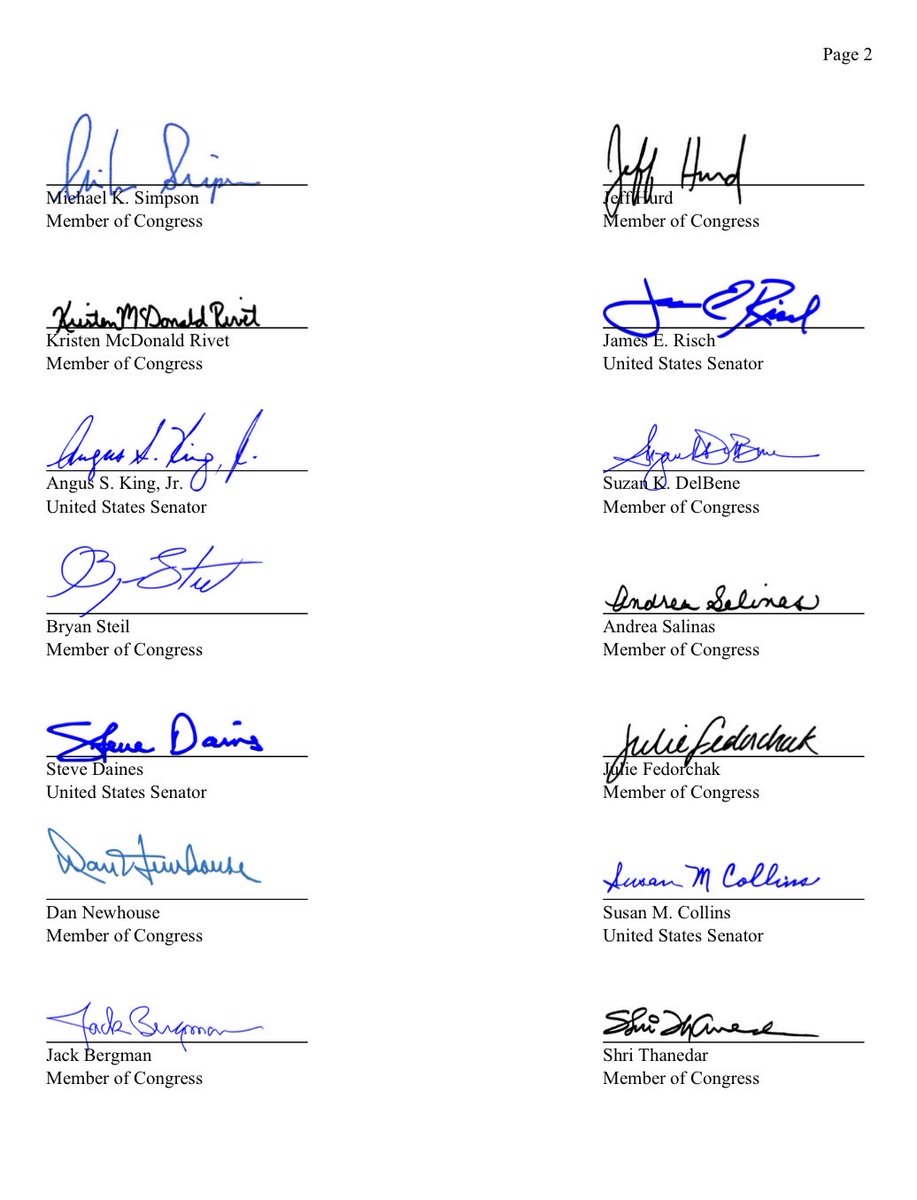 Page 2
Mike Simpson
Michael K. Simpson
Member of Congress
Jeff Hurd
Jeff Hurd
Member of Congress
Kristen McDonald Rivet
Kristen McDonald Rivet
Member of Congress
James E. Risch
James E. Risch
United States Senator
Angus S. King, Jr.
Angus S. King, Jr.
United States Senator
Suzan K. DelBene
Suzan K. DelBene
Member of Congress
Bryan Steil
Bryan Steil
Member of Congress
Andrea Salinas
Andrea Salinas
Member of Congress
Steve Daines
Steve Daines
United States Senator
Julie Fedorchak
Julie Fedorchak
Member of Congress
Dan Newhouse
Dan Newhouse
Member of Congress
Susan M Collins
Susan M. Collins
United States Senator
Jack Bergman
Jack Bergman
Member of Congress
Shri Thanedar
Shri Thanedar
Member of Congress